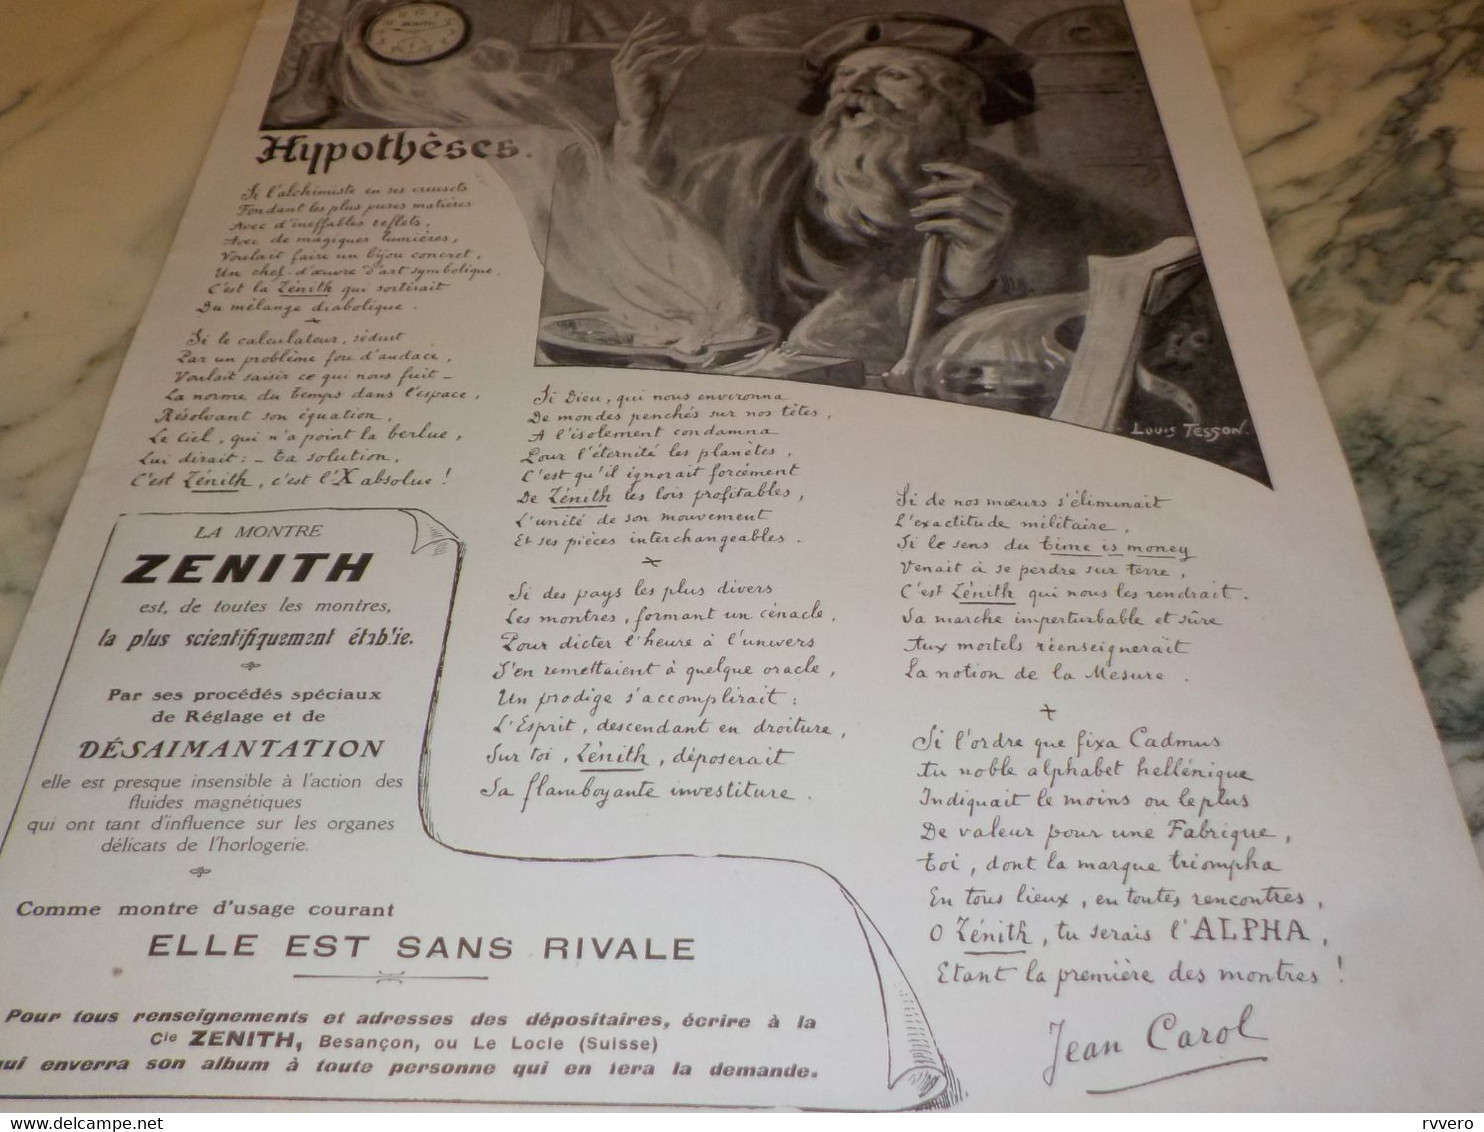 Hypothèses.
Si l'alchimiste en ses creusets
Fondant les plus pures matières
Avec d'ineffables reflets,
Avec de magiques lumières,
Voulait faire un bijou concret,
Un chef-d'œuvre d'art symbolique,
C'est la Zénith qui sortirait
Du mélange diabolique.
Si le calculateur, séduit
Par un problème fou d'audace,
Voulait saisir ce qui nous fuit –
La norme du temps dans l'espace,
Résolvant son équation,
Le Ciel, qui n'a point la berlue,
Lui dirait : – ta solution,
C'est Zénith, c'est l'X absolue !
Si Dieu, qui nous environna
De mondes penchés sur nos têtes,
A l'isolement condamna
Pour l'éternité les planètes,
C'est qu'il ignorait forcément
De Zénith les lois profitables,
L'unité de son mouvement
Et ses pièces interchangeables.
Si des pays les plus divers
Les montres, formant un cénacle,
Pour dicter l'heure à l'univers
S'en remettaient à quelque oracle,
Un prodige s'accomplirait :
L'Esprit, descendant en droiture,
Sur toi, Zénith, déposerait
Sa flamboyante investiture.
LOUIS TESSON.
Si de nos mœurs s'éliminait
L'exactitude militaire,
Si le sens du time is money
Venait à se perdre sur terre,
C'est Zénith qui nous les rendrait.
Sa marche imperturbable et sûre
Aux mortels réenseignerait
La notion de la Mesure.
Si l'ordre que fixa Cadmus
Au noble alphabet hellénique
Indiquait le moins ou le plus
De valeur pour une Fabrique,
Toi, dont la marque triompha
En tous lieux, en toutes rencontres,
O Zénith, tu serais l'ALPHA,
Etant la première des montres !
Jean Carol
LA MONTRE
ZENITH
est, de toutes les montres,
la plus scientifiquement établie.
Par ses procédés spéciaux
de Réglage et de
DÉSAIMANTATION
elle est presque insensible à l'action des
fluides magnétiques
qui ont tant d'influence sur les organes
délicats de l'horlogerie.
Comme montre d'usage courant
ELLE EST SANS RIVALE
Pour tous renseignements et adresses des dépositaires, écrire à la
Cie ZENITH, Besançon, ou Le Locle (Suisse)
qui enverra son album à toute personne qui en fera la demande.
rvvero